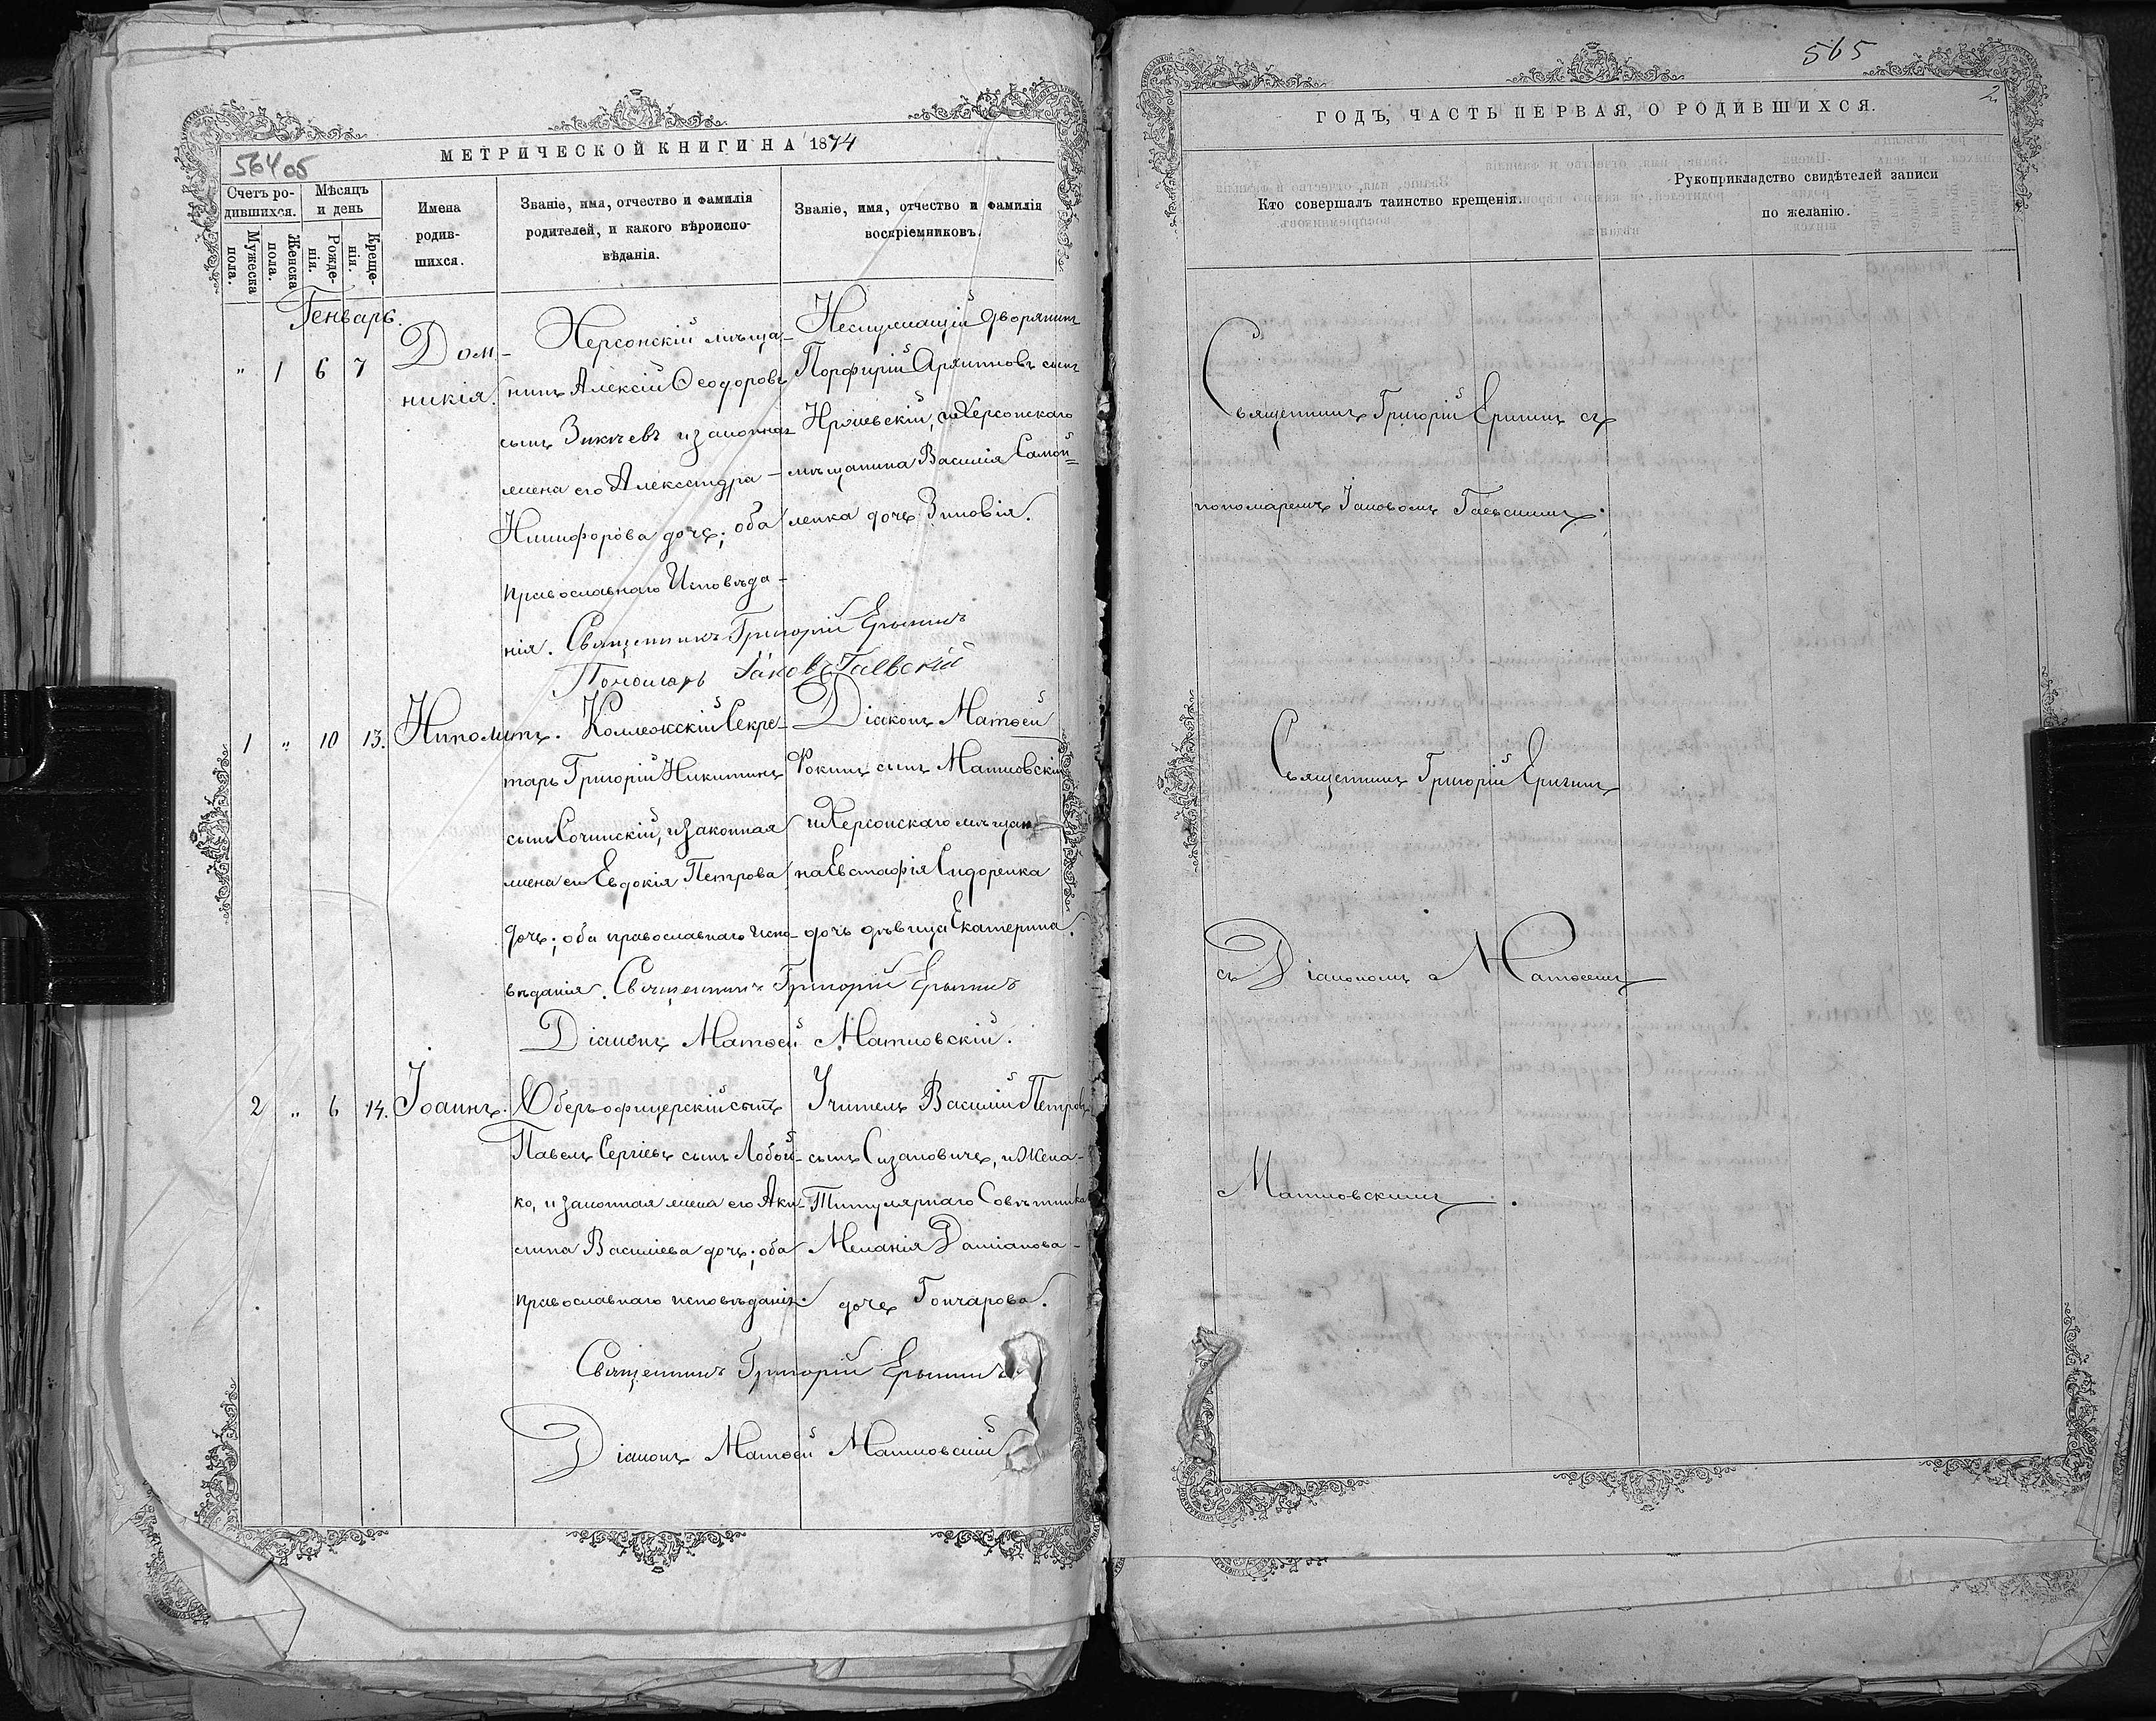 564 об
МЕТРИЧЕСКОЙ КНИГИ НА 1874
Счетъ ро-
дившихся.
Мужеска
пола.
Женска
пола.
Мѣсяцъ
и день
Рожде-
нія.
Креще-
нія.
Имена
родив-
шихся.
Званіе, имя, отчество и фамилія
родителей, и какого вѣроиспо-
вѣданія.
Званіе, имя, отчество и фамилія
воспріемниковъ.
Генварь.
" 1 6 7
Дом-
никія.
Херсонскій мѣща-
нинъ Алексій Ѳеодоровъ
сынъ и законная
жена его Александра
Никифорова дочь; оба
православнаго Исповѣда-
нія. Священникъ Григорій
Пономарь Іаковъ Гаевскій
Неслужащій дворянинъ
Порфирій сынъ
и Херсонскаго
мѣщанина Василія Самой-
ленка дочь Зиновія.
1 " 10 13.
Ипполитъ.
Коллежскій Секре-
тарь Григорій Никитинъ
сынъ Сочинскій, и законная
жена его Евдокія Петрова
дочь; оба православнаго испо-
вѣданія. Священникъ Григорій
Діаконъ Матѳей Матковскій.
Діаконъ Матѳей
Фокинъ сынъ Матковскій
и Херсонскаго мѣщани-
на Евстафія Сидоренка
дочь дѣвица Екатерина.
2 " 6 14.
Іоаннъ.
Оберъ офицерскій сынъ
Павелъ Сергіевъ сынъ Лобой-
ко, и законная жена его Аки-
лина Василіева дочь; оба
православнаго исповѣданія.
Священникъ Григорій
Діаконъ Матѳей Матковскій
Учитель Василій Петровъ
сынъ и Жена
Титулярнаго Совѣтника
Меланія Даміанова
дочь Гончарова.
565
2
ГОДЪ, ЧАСТЬ ПЕРВАЯ, О РОДИВШИХСЯ.
Кто совершалъ таинство крещенія.
Рукоприкладство свидѣтелей записи
по желанію.
Священникъ Григорій съ
пономаремъ Іаковомъ Гаевскимъ.
Священникъ Григорій
съ Діакономъ Матѳеемъ
Матковскимъ.